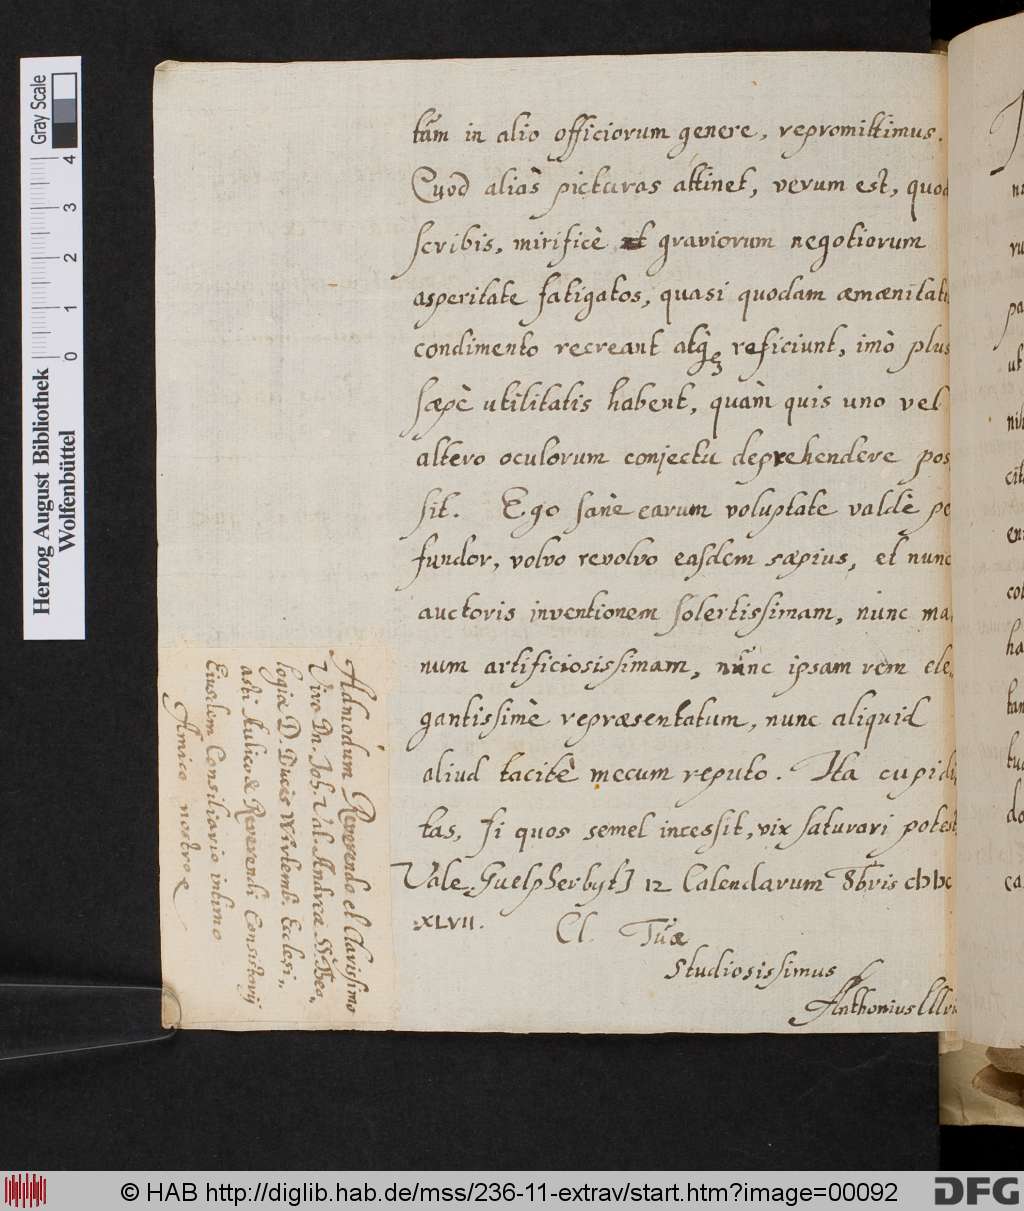 tũm in alio officiorum genere, repromittimus.
Quod aliàs picturas attinet, verum est, quod
scribis, mirificè et graviorum negotiorum
asperitate fatigatos, quasi quodam amænitatis
condimento recreant atq; reficiunt, imò plus
sæpè utilitatis habent, quàm quis uno vel
altero oculorum conjectu deprehendere pos
sit. Ego sanè earum voluptate valdè pe
fundor, volvo revolvo easdem sæpius, et nunc
auctoris inventionem solertissimam, nunc ma
num artificiosissimam, nunc ipsam rem ele
gantissimè repræsentatum, nunc aliquid
aliud tacitè mecum reputo. Ita cupidi
tas, si quos semel incessit, vix saturari potest
Vale. Guelpherbyti 12 Calendarum 8bris
XLVII.
Cl. Tuæ
Studiosissimus
Anthonius
Admodùm Reverendo et Clarissimo
Viro Dn. Joh. Val. Andreæ
logiæ D. Ducis Wirtemb. Ecclesi„
asti Aulico & Reverendi Consistorij
Eiusdem Consiliario intimo
Amico nostro
Herzog August Bibliothek
Wolfenbüttel
0 1 2 3 4
Gray Scale
© HAB http://diglib.hab.de/mss/236-11-extrav/start.htm?image=00092
DFG